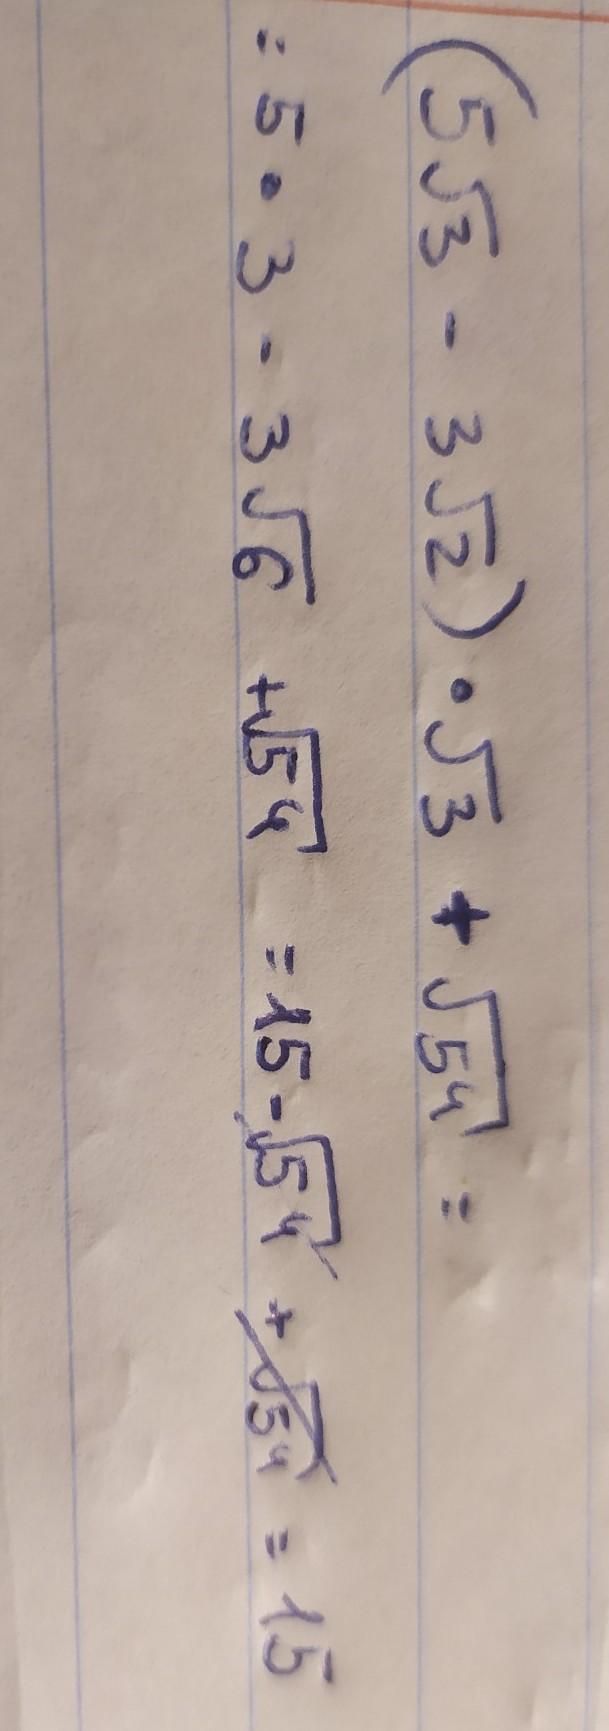 (5√3 - 3√2) · √3 + √54 =
= 5 · 3 - 3√6 + √54 = 15 - √54 + √54 = 15